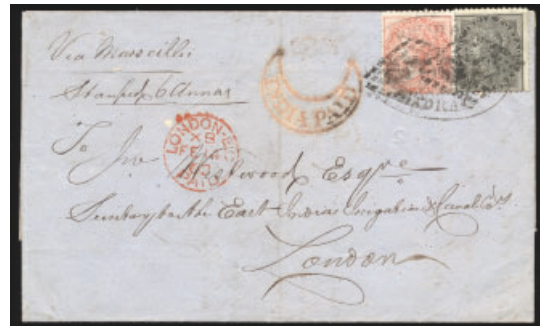 Via Marseilles
Stamped 6 Annas
INDIA PAID
MADRAS
LONDON-EC
X 8
FE
PAID
To Jno Westwood Esqre
Secretary to the East India Irrigation & Canal Co.
London